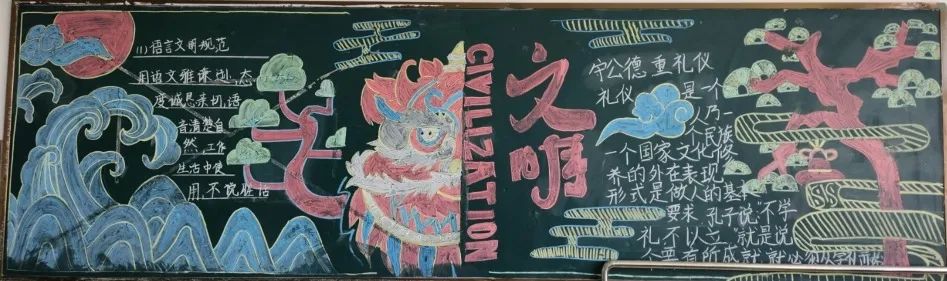 (1)语言文明规范
用语文雅谦逊,态
度诚恳亲切,语
音清楚自
然,工作
生活中使
用,不说脏话
CIVILIZATION
文明
守公德 重礼仪
礼仪 是一个
人乃一
个民族
一个国家文化修
养的外在表现
形式是做人的基本
要求 孔子说:"不学
礼不以立"就是说
个要有所成就就必须从学礼